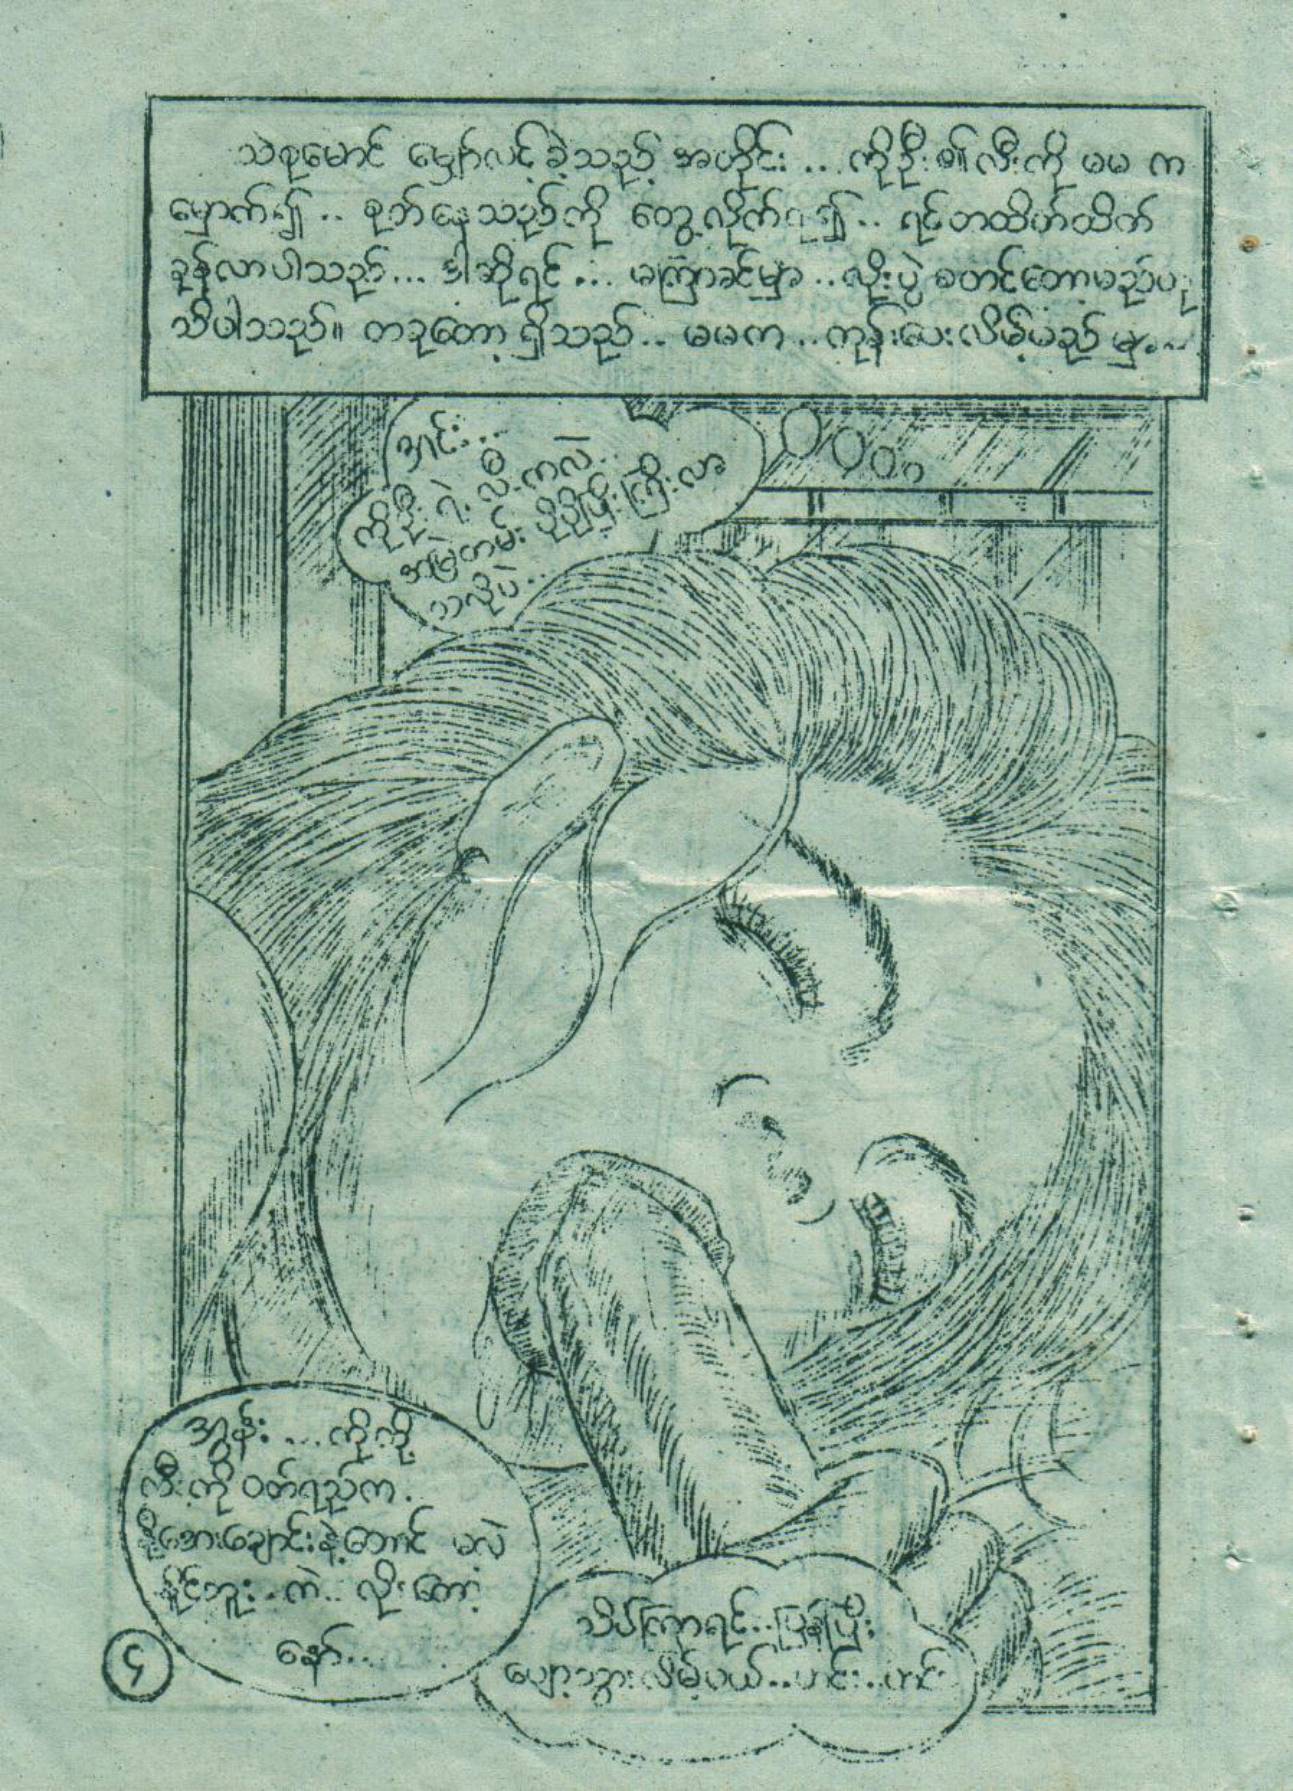 သဲစုမောင် မျှော်လင့်ခဲ့သည့် အတိုင်း ... ကိုဦး၏လီးကို မမ က
မှောက်၍ .. စုတ်နေသည်ကို တွေ့လိုက်ရ၍ .. ရင်တထိတ်ထိတ်
ခုန်လာပါသည် ... ဒါဆိုရင် ... မကြာခင်မှာ .. လိုးပွဲ စတင်တော့မည်ဟု
သိပါသည်။ တခုတော့ ရှိသည် .. မမက .. ကုန်းပေးလိမ့်မည် မှ...
အင်း...
ကိုဦး ရဲ့ လီးကလဲ..
အမြဲတမ်း ပိုပိုပြီး ကြီးလာ
သလိုပဲ..
အွန်း ... ကိုကို
လီးကို ဝတ်ရည်က.
ဒီအချောင်းနဲ့တောင် မလဲ
နိုင်ဘူး .. ကဲ.. လိုးတော့
နော်...
သိပ်ကြာရင်..ပြန်ပြီး
ပျော့သွားလိမ့်မယ်..ဟင်း..ဟင်း
၄